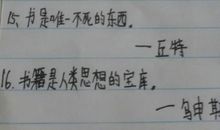 15、书是唯一不死的东西。
—丘特
16、书籍是人类思想的宝库。
—乌申